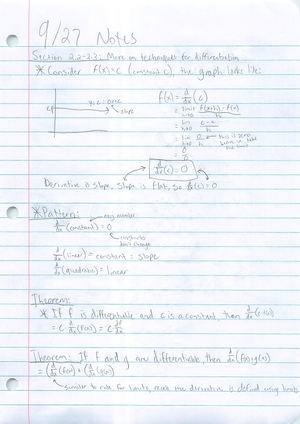 9/27 Notes
Section 2.2-2.3: More on techniques for differentiation
* Consider f(x)=c (constant c), the graph looks like:
f'(x) = d/dx (c)
= limit h→0 f(x+h)-f(x) / h
= lim h→0 c-c / h
= lim h→0 0/h this is zero before we take the limit
= 0
d/dx (c) = 0
Derivative is slope, slope is flat, so d/dx (c) = 0
* Pattern: any number
d/dx (constant) = 0
constants don't change
d/dx (linear) = constant = slope
d/dx (quadratic) = linear
Theorem:
* If f is differentiable and c is a constant, then d/dx (c·f(x))
= c · d/dx (f(x)) = c df/dx
Theorem: If f and g are differentiable, then d/dx (f(x)+g(x))
= (d/dx (f(x)) + (d/dx (g(x))
similar to rule for limits, the derivative is defined using limits